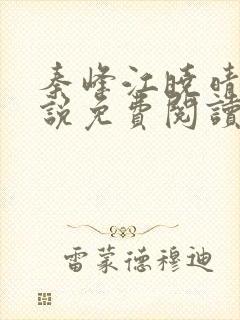 秦峰江曉晴
說免費閱讀
雷蒙德穆迪